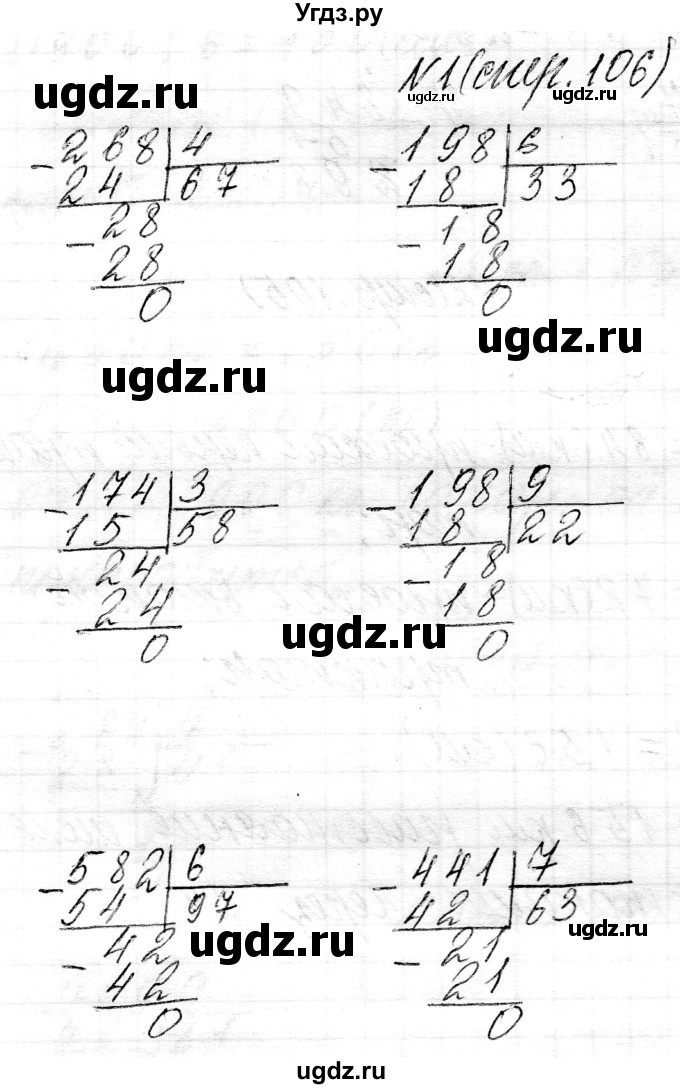 Угдз.ру
№1(стр.106)
ugdz.ru ugdz.ru ugdz.ru
-268|4 -198|6
24 67 18 33
-28 -18
28 18
0 0
ugdz.ru
ugdz.ru
-174|3 -198|9
15 58 18 22
-24 -18
24 18
0 0
ugdz.ru
-582|6 -441|7
54 97 42 63
ugdz.ru ugdz.ru
-42 -21
42 21
0 0
ugdz.ru